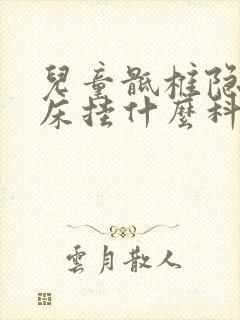 兒童骶椎隐
床挂什麼科
雲月散人